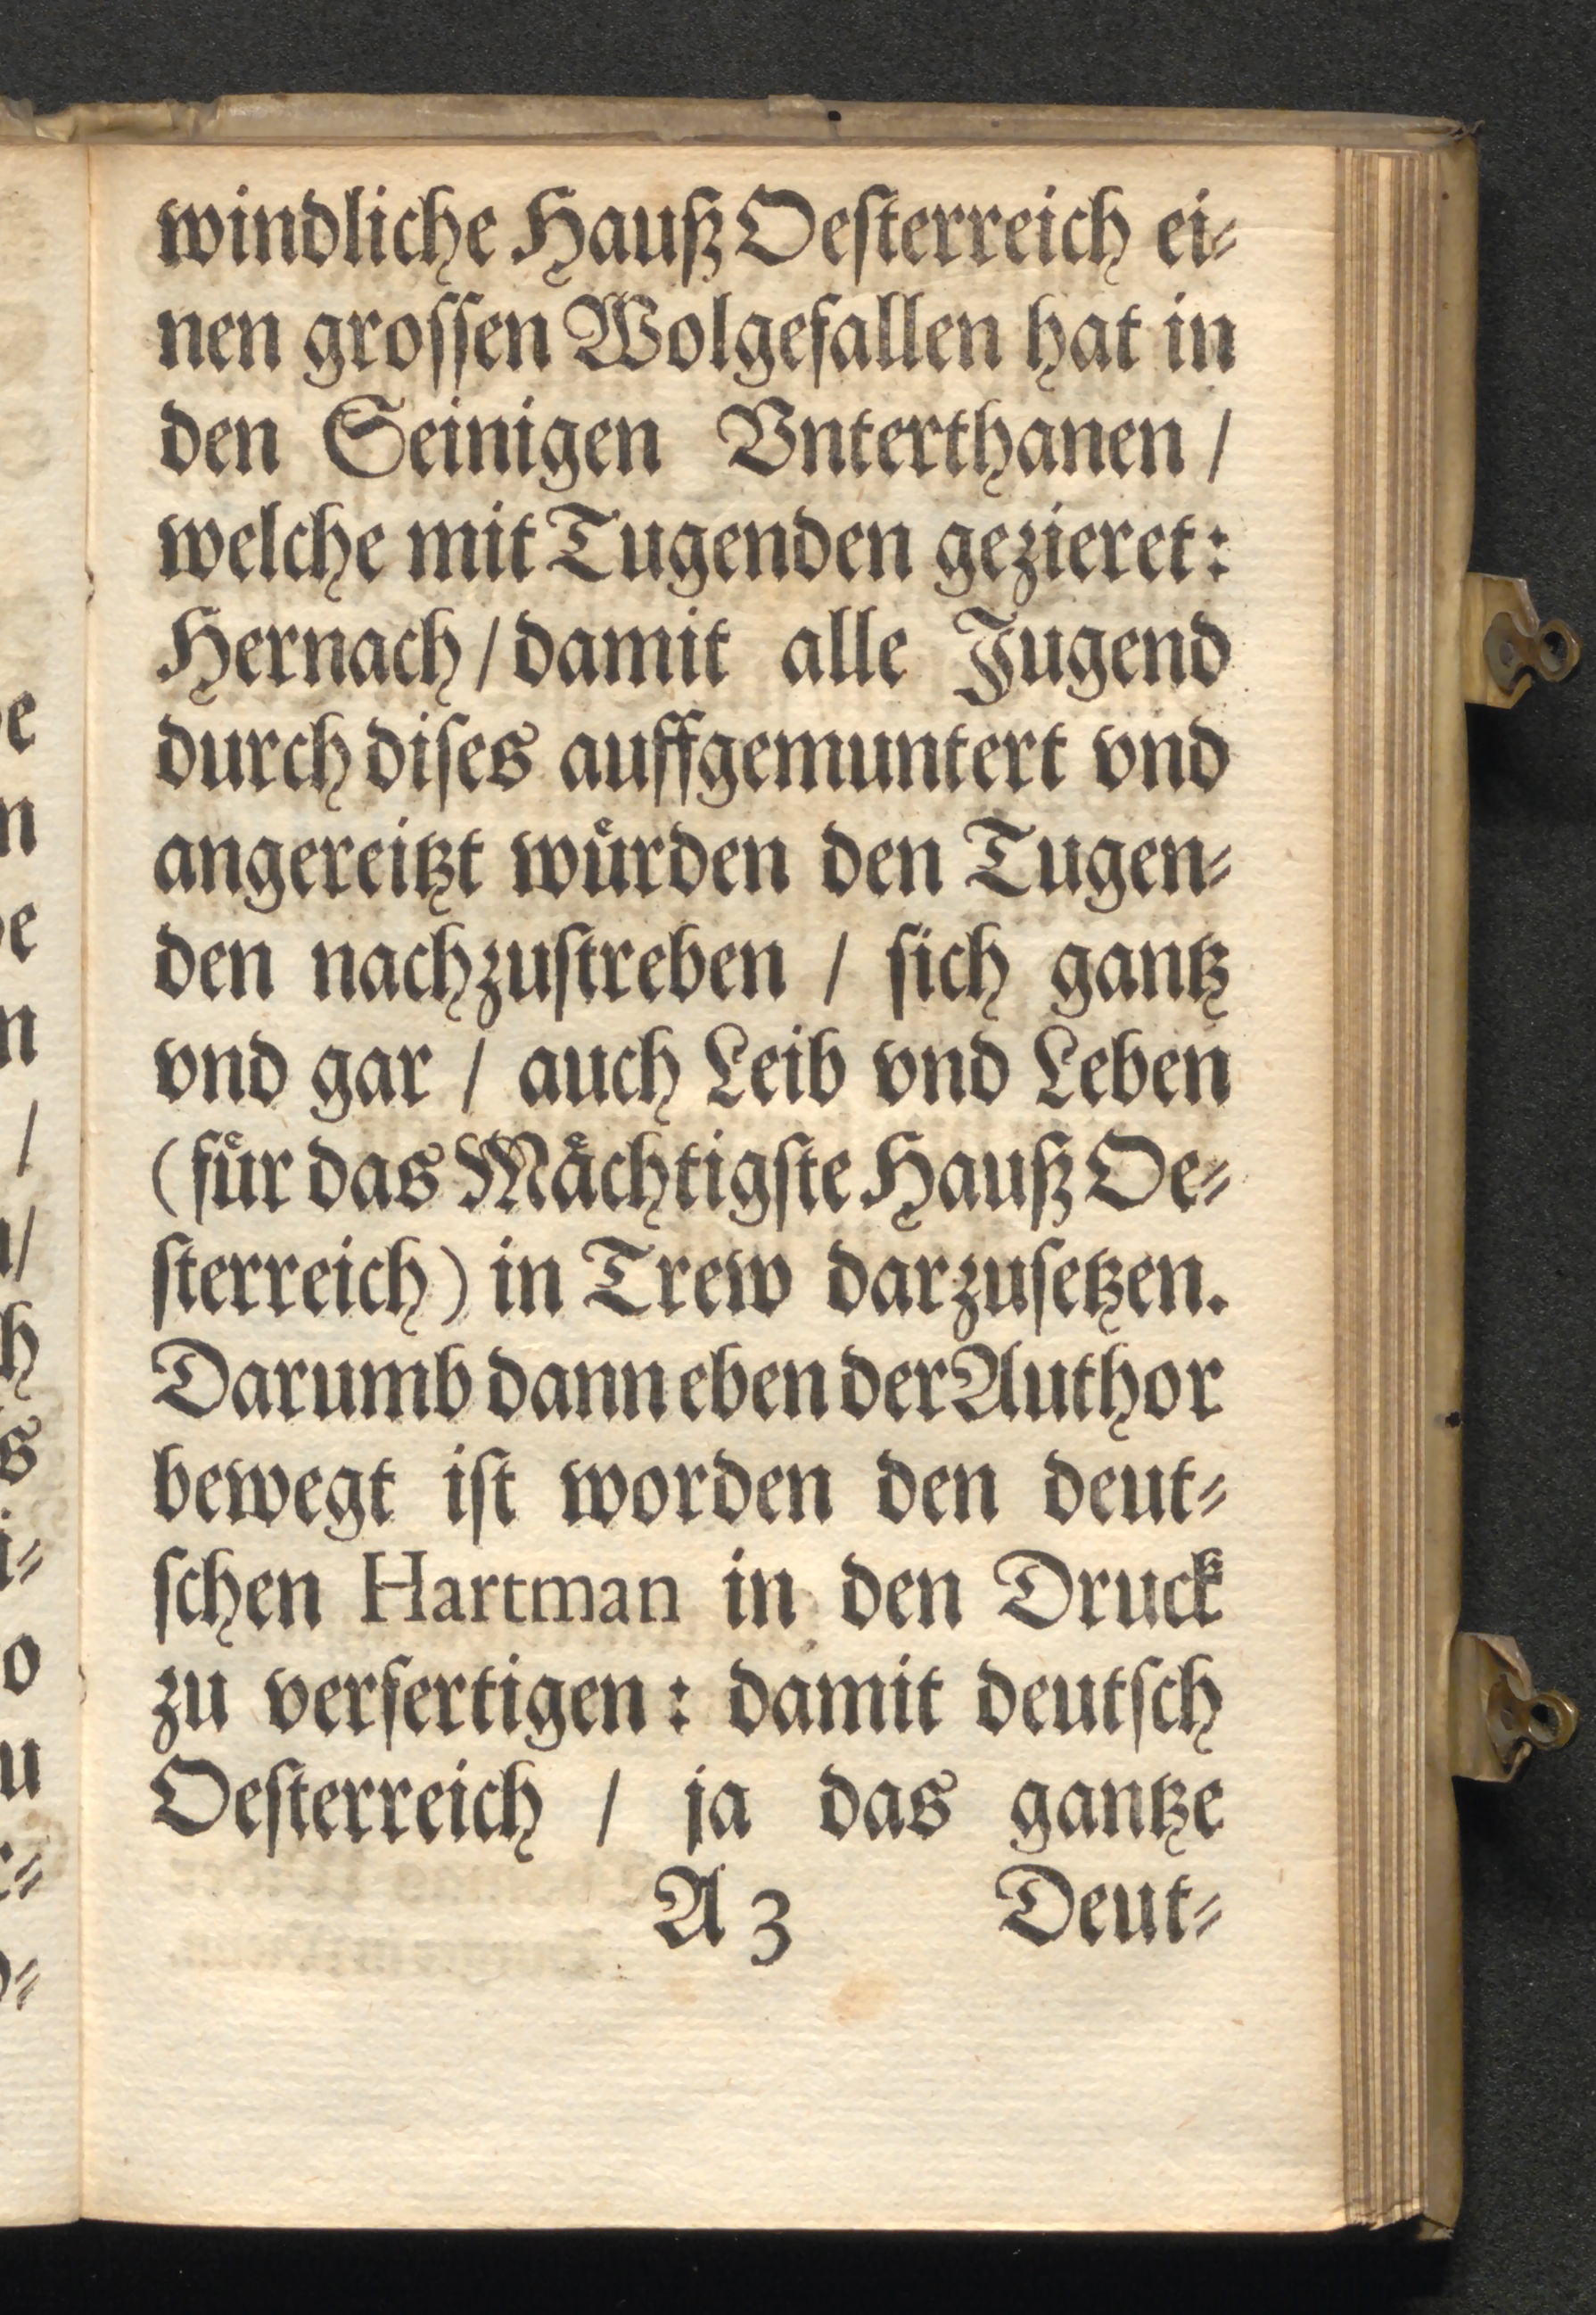 windliche Hauß Oeſterreich ei⸗
nen groſſen Wolgefallen hat in
den Seinigen Vnterthanen /
welche mit Tugenden gezieret:
Hernach / damit alle Jugend
durch diſes auffgemuntert vnd
angereitzt wuͤrden den Tugen⸗
den nachzuſtreben / ſich gantz
vnd gar / auch Leib vnd Leben
(fuͤr das Maͤchtigſte Hauß Oe⸗
ſterreich) in Trew darzuſetzen.
Darumb dann eben der Author
bewegt iſt worden den deut⸗
ſchen Hartman in den Druck
zu verfertigen: damit deutſch
Oeſterreich / ja das gantze
A 3 Deut⸗